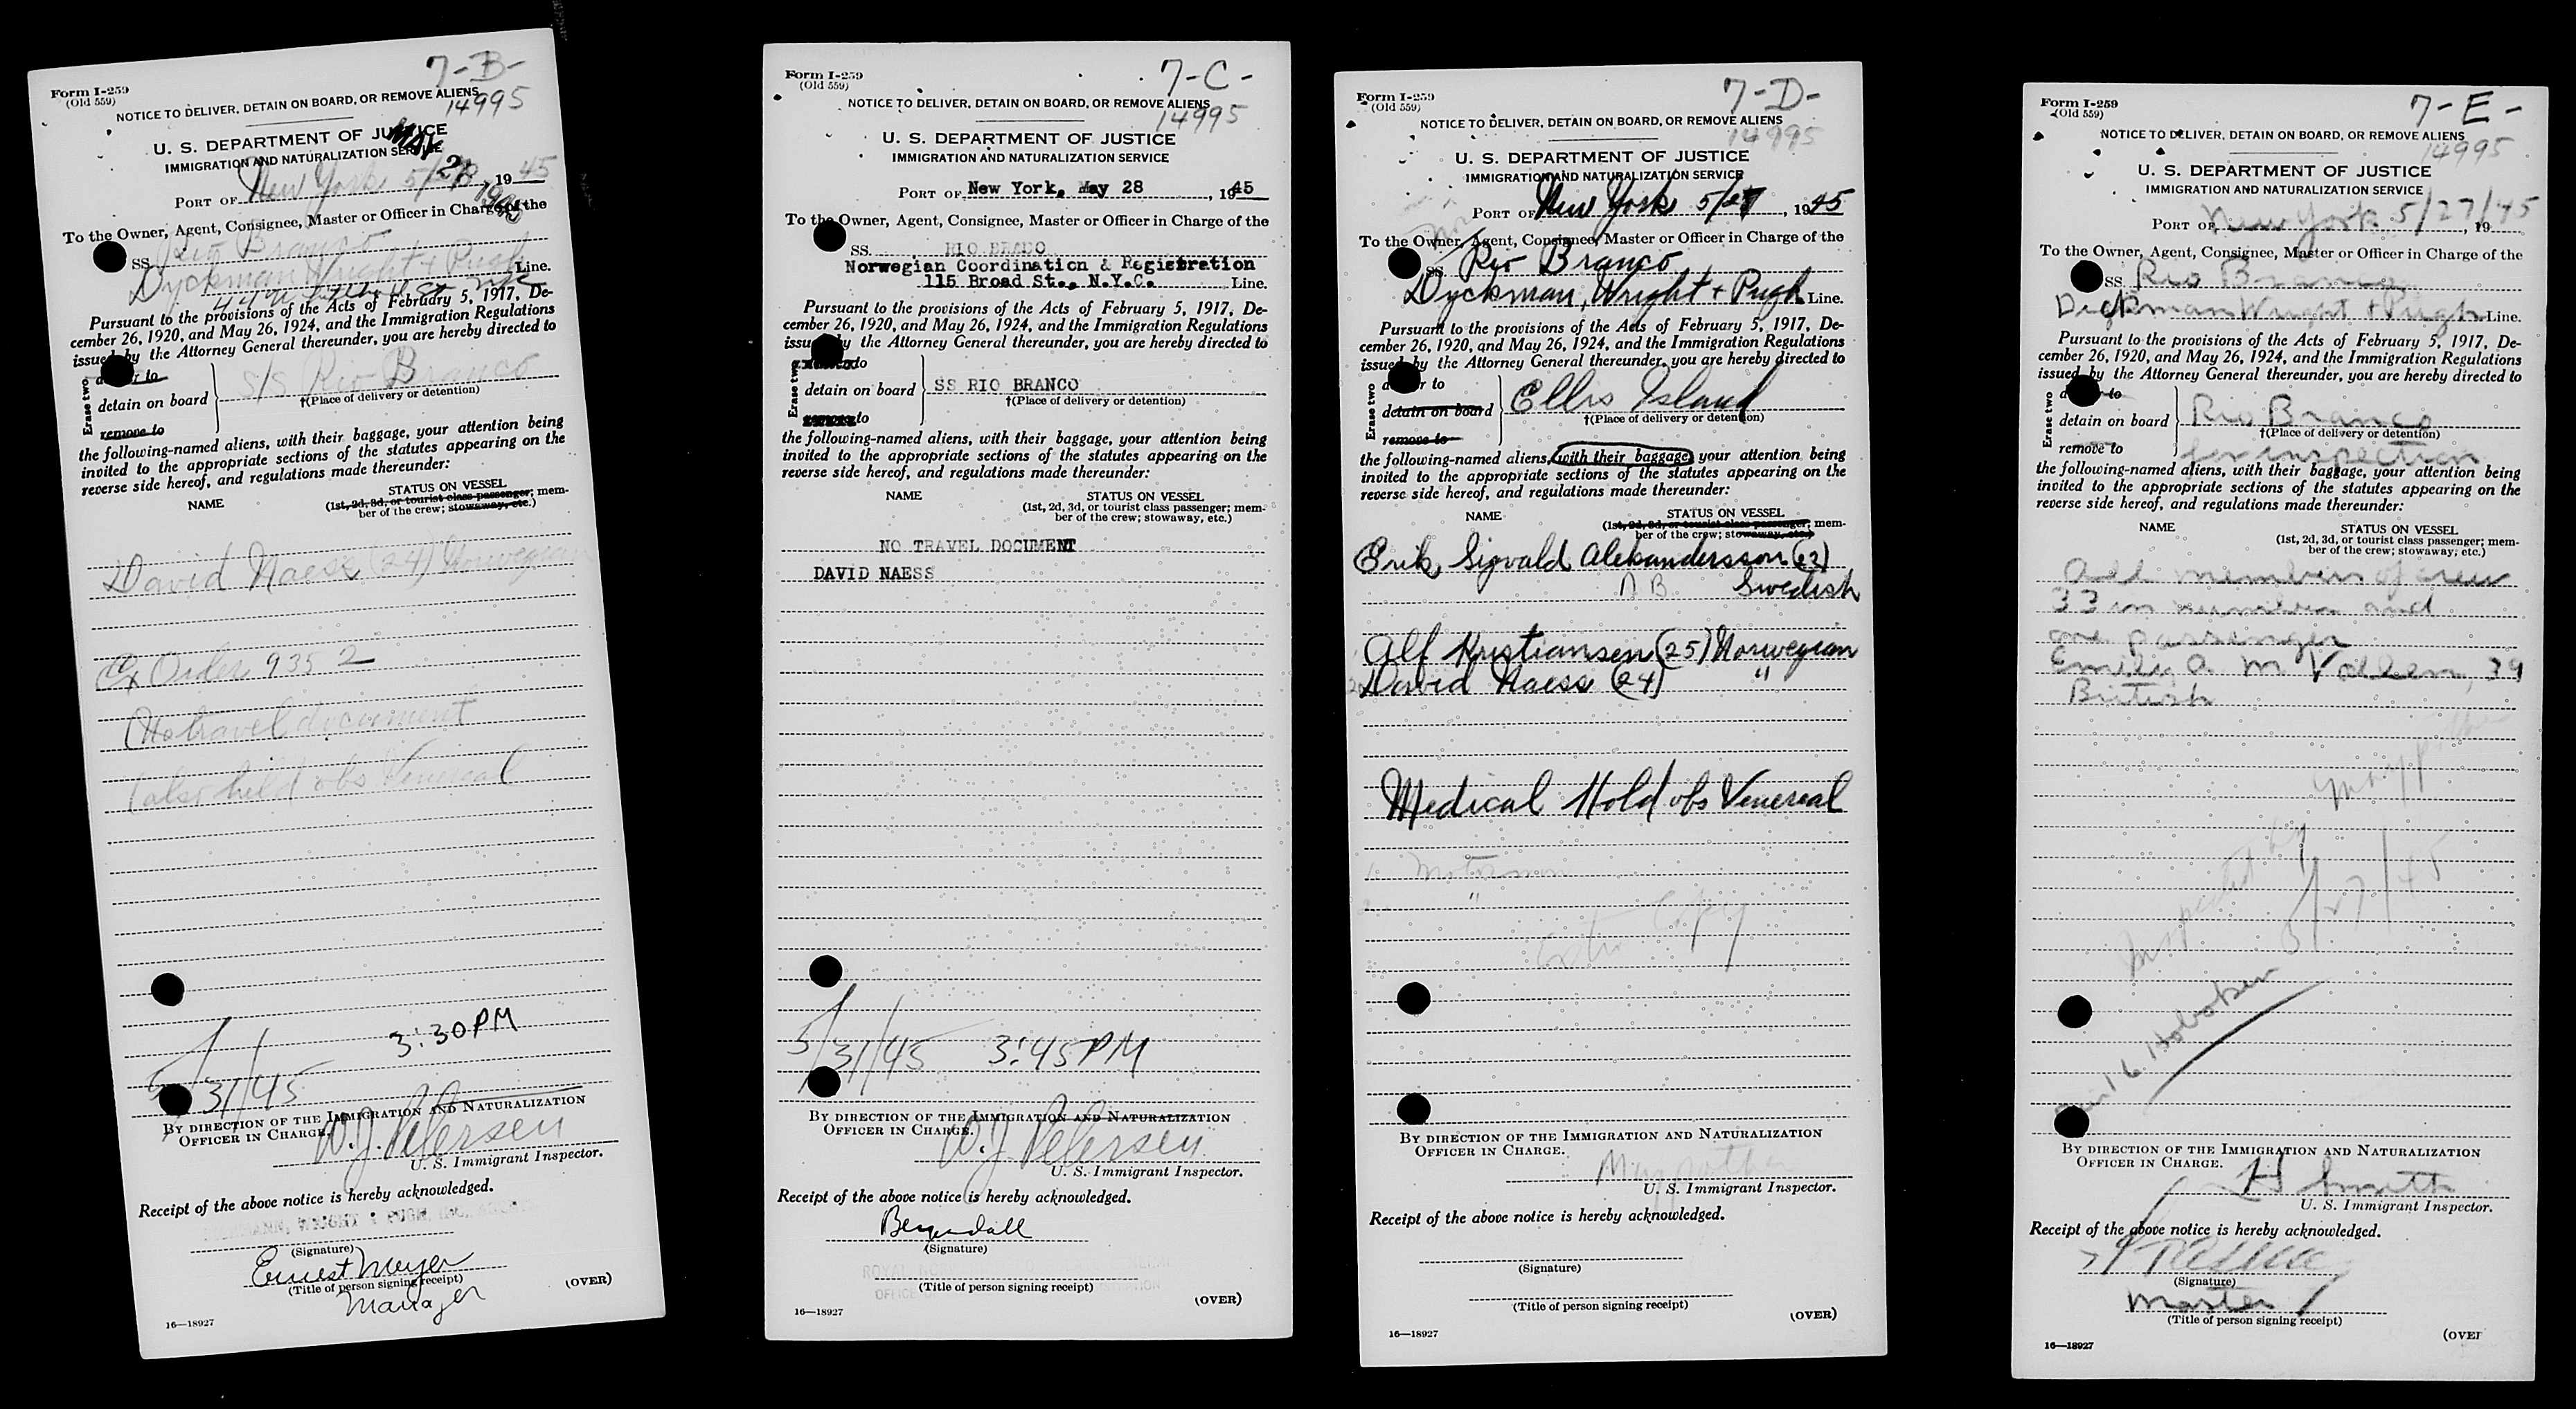 7-B-
Form I-259
(Old 559)
14995
NOTICE TO DELIVER, DETAIN ON BOARD, OR REMOVE ALIENS
U. S. DEPARTMENT OF JUSTICE
IMMIGRATION AND NATURALIZATION SERVICE
MAY
PORT OF New York 5/28, 1945
To the Owner, Agent, Consignee, Master or Officer in Charge of the
SS. Rio Branco
Dyckman Wright + Pugh Line.
Pursuant to the provisions of the Acts of February 5, 1917, De-
cember 26, 1920, and May 26, 1924, and the Immigration Regulations
issued by the Attorney General thereunder, you are hereby directed to
Erase two
to
detain on board
S/S Rio Branco
†(Place of delivery or detention)
remove to
the following-named aliens, with their baggage, your attention being
invited to the appropriate sections of the statutes appearing on the
reverse side hereof, and regulations made thereunder:
NAME
STATUS ON VESSEL
(1st, 2d, 3d, or tourist class passenger; mem-
ber of the crew; stowaway, etc.)
David Naess (24) Norwegian
Ex Order 9352
(No travel document
(also held obs Venereal
3:30 PM
5/31/45
BY DIRECTION OF THE IMMIGRATION AND NATURALIZATION
OFFICER IN CHARGE.
W. J. Petersen
U. S. Immigrant Inspector.
Receipt of the above notice is hereby acknowledged.
WRIGHT & PUGH, INC.
(Signature)
Ernest Meyer
(Title of person signing receipt)
Manager
(OVER)
16—18927
7-C-
Form I-259
(Old 559)
NOTICE TO DELIVER, DETAIN ON BOARD, OR REMOVE ALIENS
14995
U. S. DEPARTMENT OF JUSTICE
IMMIGRATION AND NATURALIZATION SERVICE
PORT OF New York, May 28, 1945
To the Owner, Agent, Consignee, Master or Officer in Charge of the
SS. RIO BRANCO
Norwegian Coordination & Registration
115 Broad St., N.Y.C. Line.
Pursuant to the provisions of the Acts of February 5, 1917, De-
cember 26, 1920, and May 26, 1924, and the Immigration Regulations
issued by the Attorney General thereunder, you are hereby directed to
Erase two
to
detain on board
SS RIO BRANCO
†(Place of delivery or detention)
to
the following-named aliens, with their baggage, your attention being
invited to the appropriate sections of the statutes appearing on the
reverse side hereof, and regulations made thereunder:
NAME
STATUS ON VESSEL
(1st, 2d, 3d, or tourist class passenger; mem-
ber of the crew; stowaway, etc.)
NO TRAVEL DOCUMENT
DAVID NAESS
5/31/45 3:45 PM
BY DIRECTION OF THE IMMIGRATION AND NATURALIZATION
OFFICER IN CHARGE.
W. J. Petersen
U. S. Immigrant Inspector.
Receipt of the above notice is hereby acknowledged.
(Signature)
(Title of person signing receipt)
(OVER)
16—18927
7-D-
Form I-259
(Old 559)
NOTICE TO DELIVER, DETAIN ON BOARD, OR REMOVE ALIENS
14995
U. S. DEPARTMENT OF JUSTICE
IMMIGRATION AND NATURALIZATION SERVICE
PORT OF New York 5/27, 1945
To the Owner, Agent, Consignee, Master or Officer in Charge of the
SS Rio Branco
Dyckman, Wright + Pugh Line.
Pursuant to the provisions of the Acts of February 5, 1917, De-
cember 26, 1920, and May 26, 1924, and the Immigration Regulations
issued by the Attorney General thereunder, you are hereby directed to
Erase two
to
detain on board
Ellis Island
†(Place of delivery or detention)
remove to
the following-named aliens, with their baggage, your attention being
invited to the appropriate sections of the statutes appearing on the
reverse side hereof, and regulations made thereunder:
NAME
STATUS ON VESSEL
(1st, 2d, 3d, or tourist class passenger; mem-
ber of the crew; stowaway, etc.)
Erik Sigvald Aleksandersson (23)
A B. Swedish
Alf Kristiansen (25) Norwegian
David Naess (24) "
Medical Hold obs Venereal
1. Motorman
"
Extra Copy
BY DIRECTION OF THE IMMIGRATION AND NATURALIZATION
OFFICER IN CHARGE.
U. S. Immigrant Inspector.
Receipt of the above notice is hereby acknowledged.
(Signature)
(Title of person signing receipt)
(OVER)
16—18927
7-E-
Form I-259
(Old 559)
NOTICE TO DELIVER, DETAIN ON BOARD, OR REMOVE ALIENS
14995
U. S. DEPARTMENT OF JUSTICE
IMMIGRATION AND NATURALIZATION SERVICE
PORT OF New York 5/27/45, 19
To the Owner, Agent, Consignee, Master or Officer in Charge of the
SS. Rio Branco
Dyckman Wright + Pugh Line.
Pursuant to the provisions of the Acts of February 5, 1917, De-
cember 26, 1920, and May 26, 1924, and the Immigration Regulations
issued by the Attorney General thereunder, you are hereby directed to
Erase two
to
detain on board
Rio Branco
†(Place of delivery or detention)
remove to
for inspection
the following-named aliens, with their baggage, your attention being
invited to the appropriate sections of the statutes appearing on the
reverse side hereof, and regulations made thereunder:
NAME
STATUS ON VESSEL
(1st, 2d, 3d, or tourist class passenger; mem-
ber of the crew; stowaway, etc.)
All members of crew
33 in number and
one passenger
Emily A. M. 39
British
Inspected by
5/27/45
Pier 16. Hoboken
BY DIRECTION OF THE IMMIGRATION AND NATURALIZATION
OFFICER IN CHARGE.
Smith
U. S. Immigrant Inspector.
Receipt of the above notice is hereby acknowledged.
(Signature)
Master
(Title of person signing receipt)
(OVER
16—18927